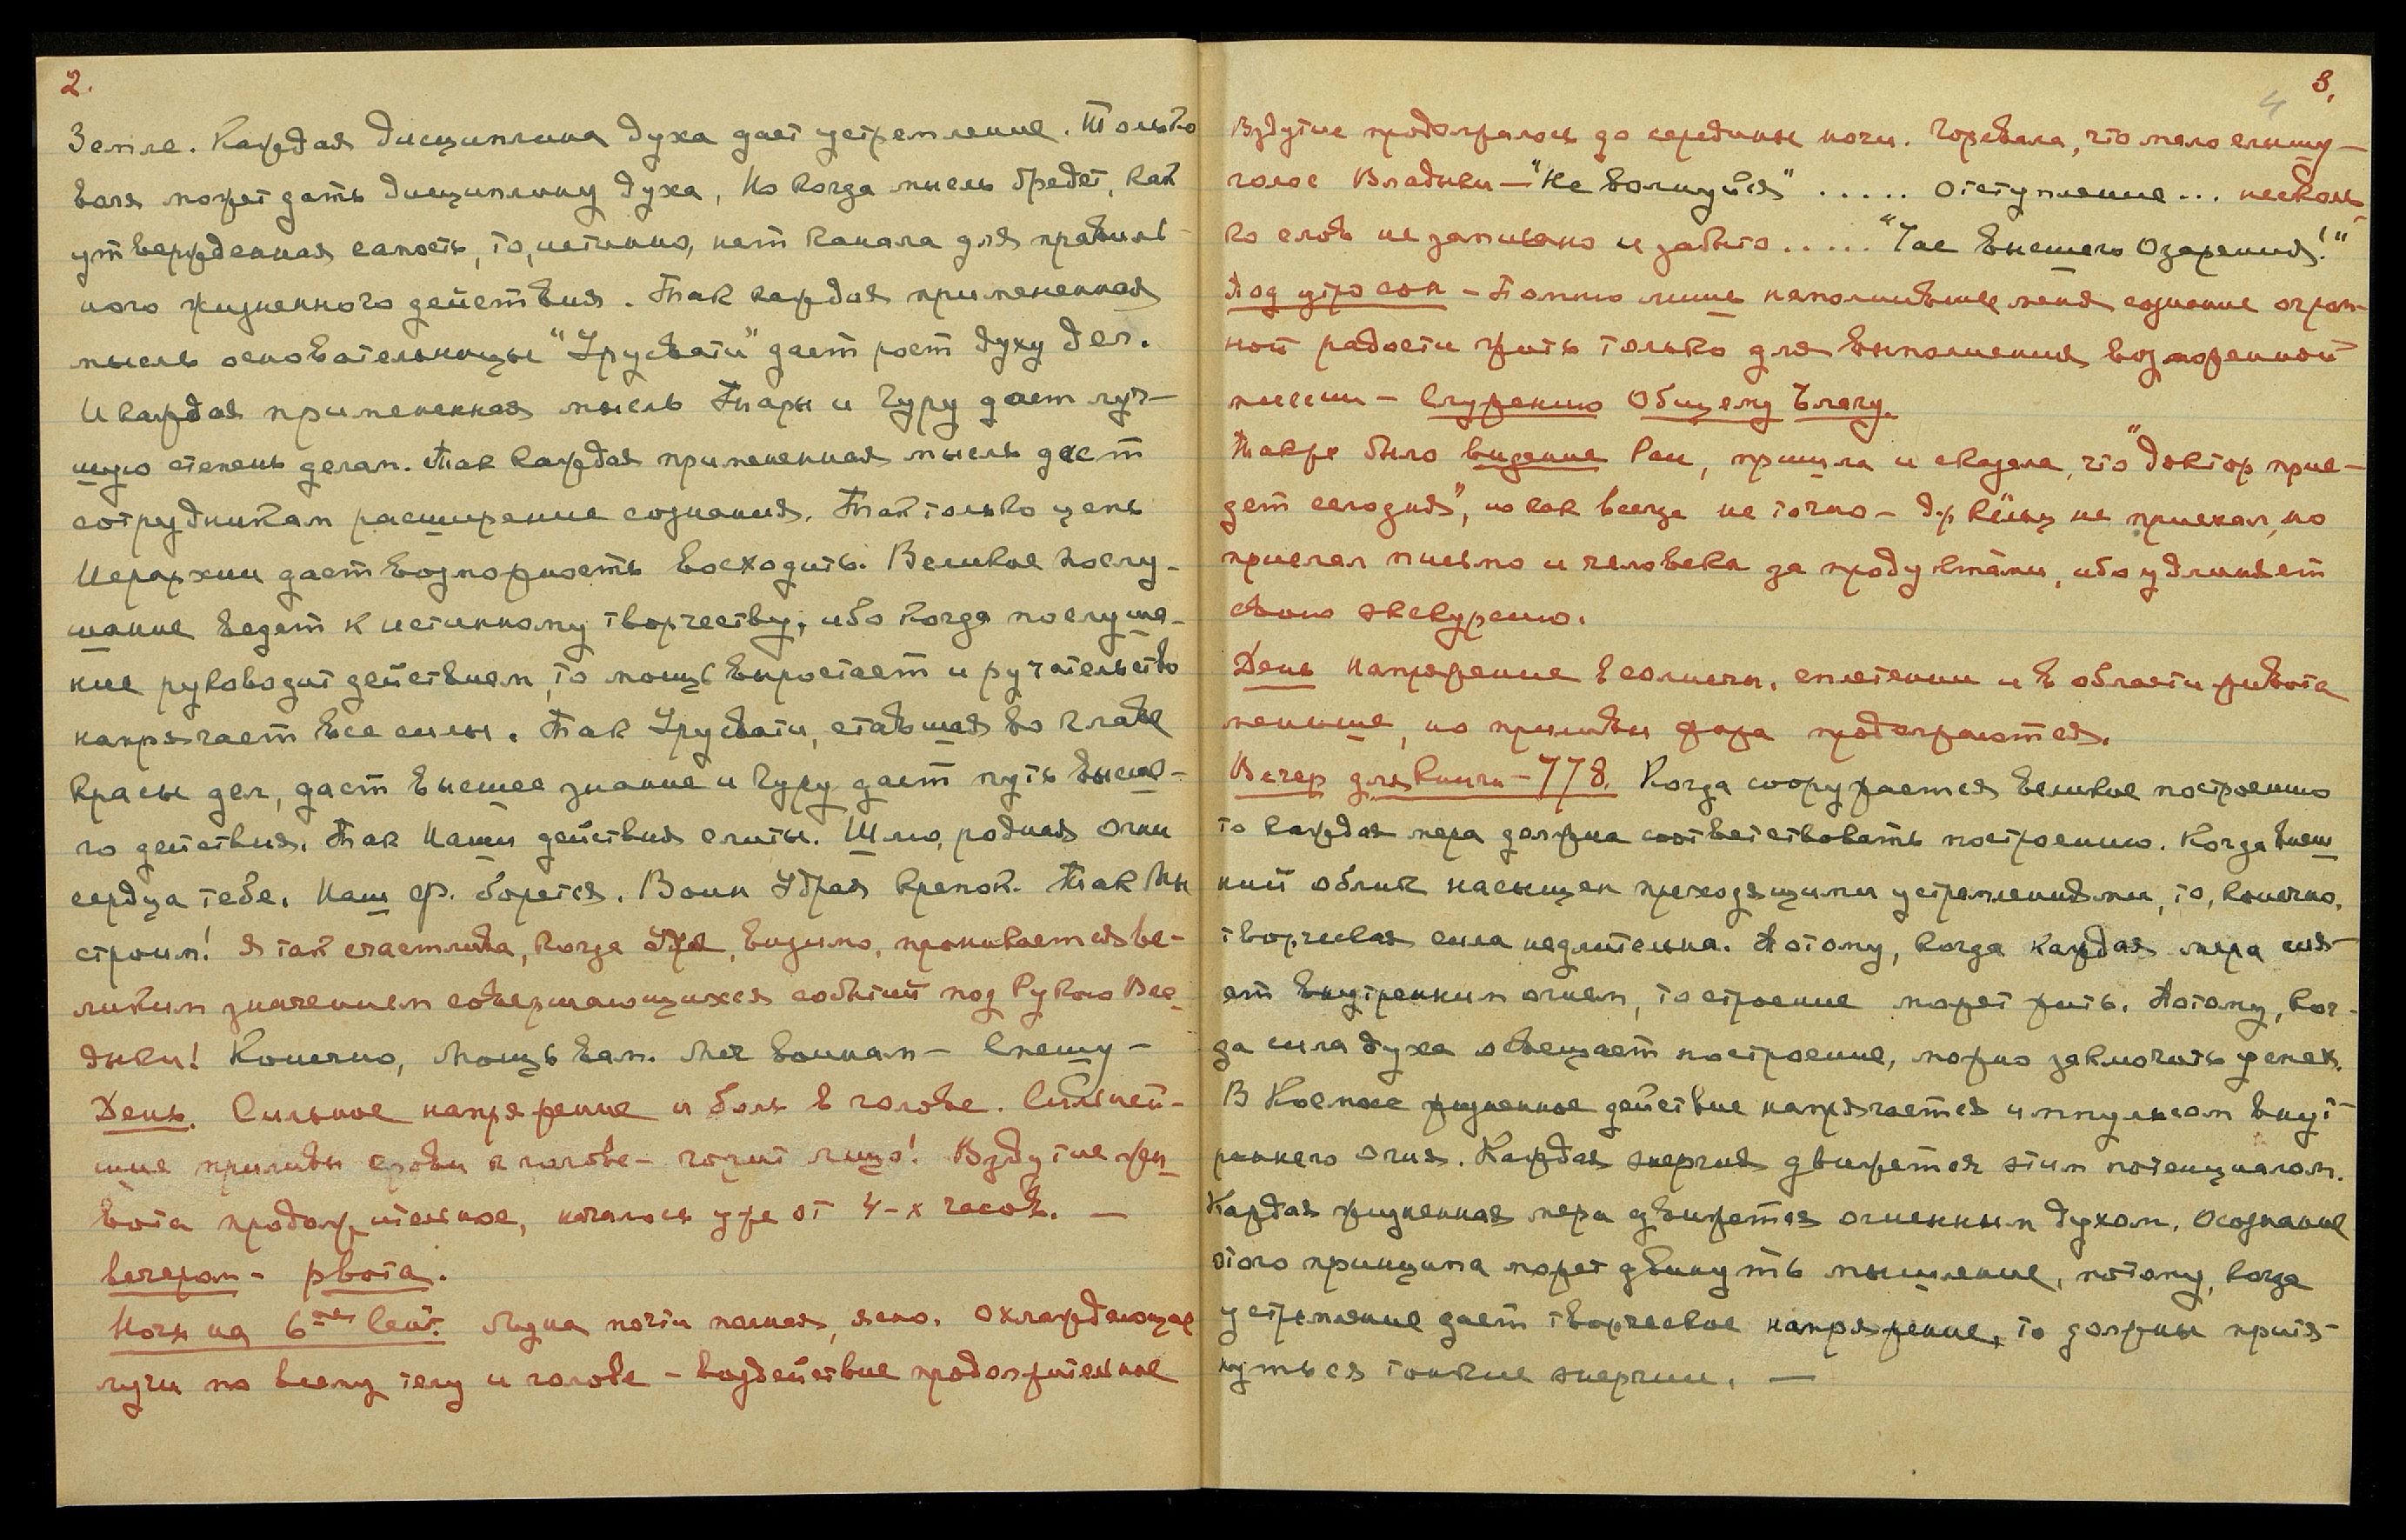 2.
Земле. Каждая дисциплина духа дает устремление. Только
воля может дать дисциплину духа, но когда мысль бредет, как
утвержденная самость, то, истинно, нет канала для правиль-
ного жизненного действия. Так каждая примененная
мысль основательницы "Урусвати" дает рост духу дел.
И каждая примененная мысль Тары и Гуру дает луч-
шую степень делам. Так каждая примененная мысль даст
сотрудникам расширение сознания. Так только цепь
Иерархии дает возможность восходить. Великое послу-
шание ведет к истинному творчеству, ибо когда послуша-
ние руководит действием, то мощь вырастает и ручательство
напрягает все силы. Так Урусвати, ставшая во главе
красы дел, даст высшее знание и Гуру дает путь высше-
го действия. Так Наши действия слиты. Шлю, родная огни
сердца тебе. Наш ф. борется. Воин Удрая крепок. Так Мы
строим! Я так счастлива, когда Удрая, видимо, проникается ве-
ликим значением совершающихся событий под Рукою Вла-
дыки! Конечно, Мощь вам. Меч воинам - Спешу -
День. Сильное напряжение и боль в голове. Сильней-
шие приливы крови к голове - горит лицо! Вздутие жи-
вота продолжительное, началось уже от 4-х часов. —
вечером - рвота.
Ночь на 6-ое Сент. Луна почти полная, ясно. Охлаждающие
лучи по всему телу и голове - воздействие продолжительное
3.
4
Вздутие продолжалось до середины ночи. Горевала, что мало слышу -
голос Владыки — "Не волнуйся" ..... отступление... несколь-
ко слов не записано и забыто..... "Час высшего озарения!"
Под утро сон - Помню лишь наполнившее меня сознание огром-
ной радости жить только для выполнения возложенной
миссии - Служению Общему Благу.
Также было видение Раи, пришла и сказала, что "доктор прие-
дет сегодня", но как всегда не точно - д-р Кёльц не приехал, но
прислал письмо и человека за продуктами, ибо удлиняет
свою экскурсию.
День Напряжение в солнечн. сплетении и в области живота
меньше, но приливы жара продолжаются.
Вечер для Книги - 778. Когда сооружается великое построение
то каждая мера должна соответствовать построению. Когда внеш-
ний облик насыщен преходящими устремлениями, то, конечно,
творческая сила недлительна. Потому, когда каждая мера сия-
ет внутренним огнем, то строение может жить. Потому, ког-
да сила духа освещает построение, можно заключить успех.
В Космосе жизненное действие напрягается импульсом внут-
реннего огня. Каждая энергия движется этим потенциалом.
Каждая жизненная мера движется огненным духом. Осознание
этого принципа может двинуть мышление, потому, когда
устремление дает творческое напряжение, то должны притя-
нуться тонкие энергии. —